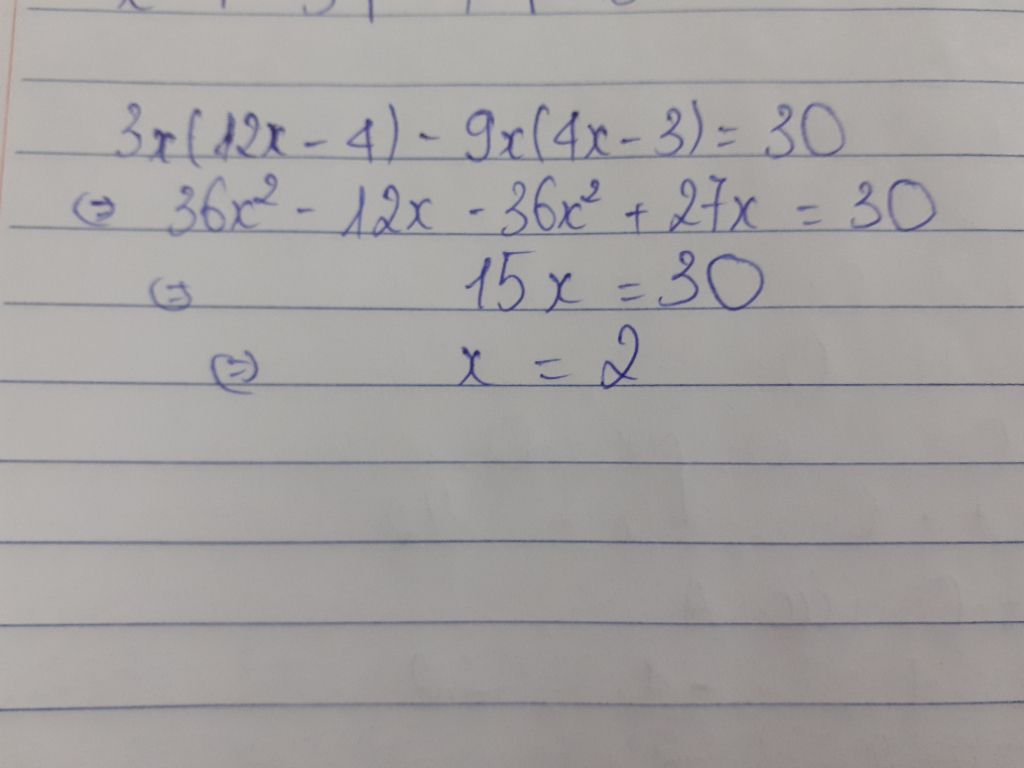 3x(12x - 4) - 9x(4x - 3) = 30
⇔ 36x² - 12x - 36x² + 27x = 30
⇔ 15x = 30
⇔ x = 2